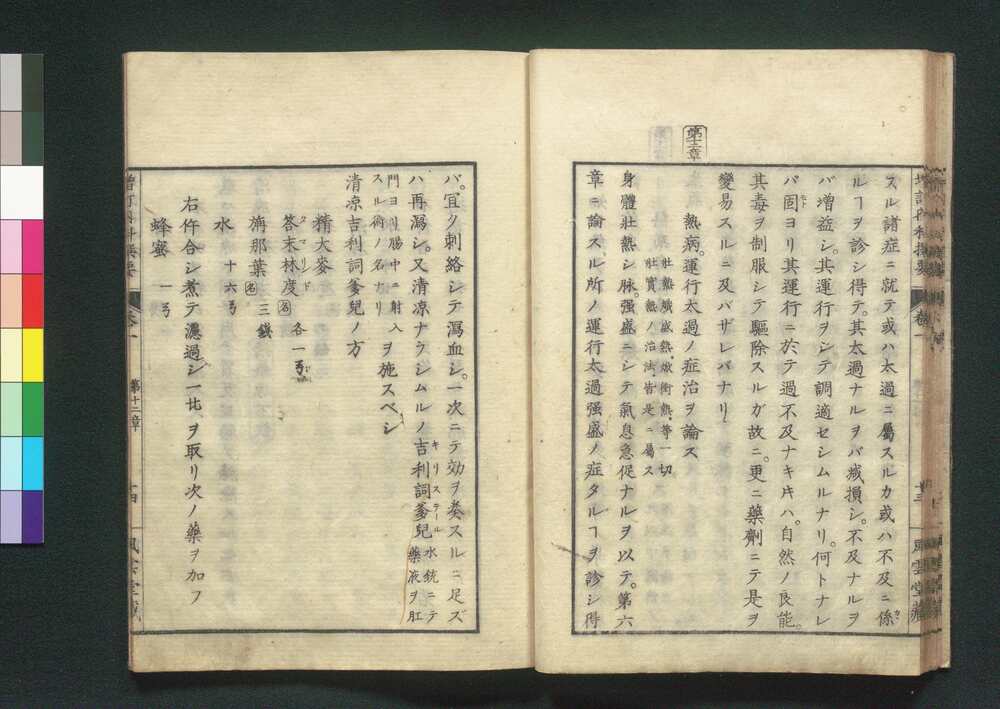 スル諸症ニ就テ或ハ太過ニ屬スルカ或ハ不及ニ係
ルヿヲ診シ得テ。其太過ナルヲバ減損シ。不及ナルヲ
バ増益シ。其運行ヲシテ調適セシムルナリ。何トナレ
バ固ヨリ其運行ニ於テ過不及ナキ片ハ。自然ノ良能。
其毒ヲ制服シテ驅除スルガ故ニ。更ニ藥劑ニテ是ヲ
變易スルニ及バザレバナリ
第十二章
熱病。運行太過ノ症治ヲ論ス
壯熱、熾盛熱、焮衝熱、等一切
壯實熱ノ治法、皆是ニ屬ス
身體壯熱シ。脉。強盛ニシテ氣息急促ナルヲ以テ。第六
章ニ論スル所ノ運行太過强盛ノ症タルヿヲ診シ得
卷一
十三
風雲堂藏
卷一
第十二章
十四
バ。冝ク刺絡シテ瀉血シ。一次ニテ効ヲ奏スルニ足ズ
ハ再瀉シ。又清凉ナラシムルノ吉利詞
キリステール
水銃ニテ
藥液ヲ肛
門ヨリ腸中ニ射入
スル術ノ名ナリ
ヲ施スベシ
清凉吉利詞 兒ノ方
精大麥
答末林度
タマリンド
各一
旃那葉 三錢
水 十六
右件合シ煮テ濾過シ一 ヲ取リ次ノ藥ヲ加フ
蜂蜜 一